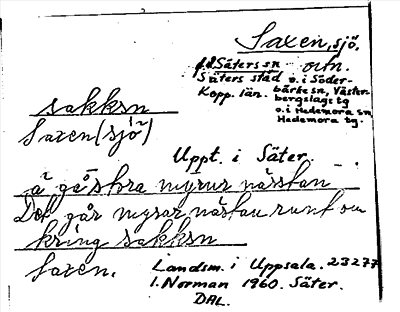 Saxen, sjö,
f.d. Säters sn ortn.
Säters stad o. i Söder-
Kopp. län. bärke sn, Väster-
bergslags tg
o. i Hedemora sn,
Hedemora tg.
sakksn
Saxen (sjö)
Uppt. i Säter.
ä gå stora myrur nästan
Det går myrar nästan runt om
kring sakksn
Saxen.
Landsm. i Uppsala. 23277
I. Norman 1960. Säter.
DAL.